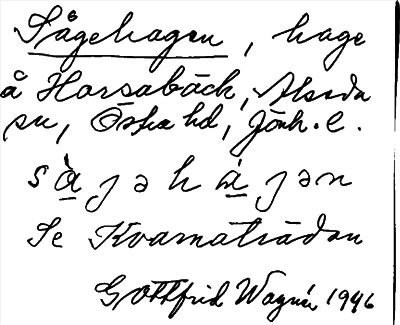 Sågehagen, hage
å Horsabäck, Alseda
sn, Östra hd, Jönk. l.
sàjəhàjən
Se Kvarnaträdan
Gottfrid Wagnér 1946